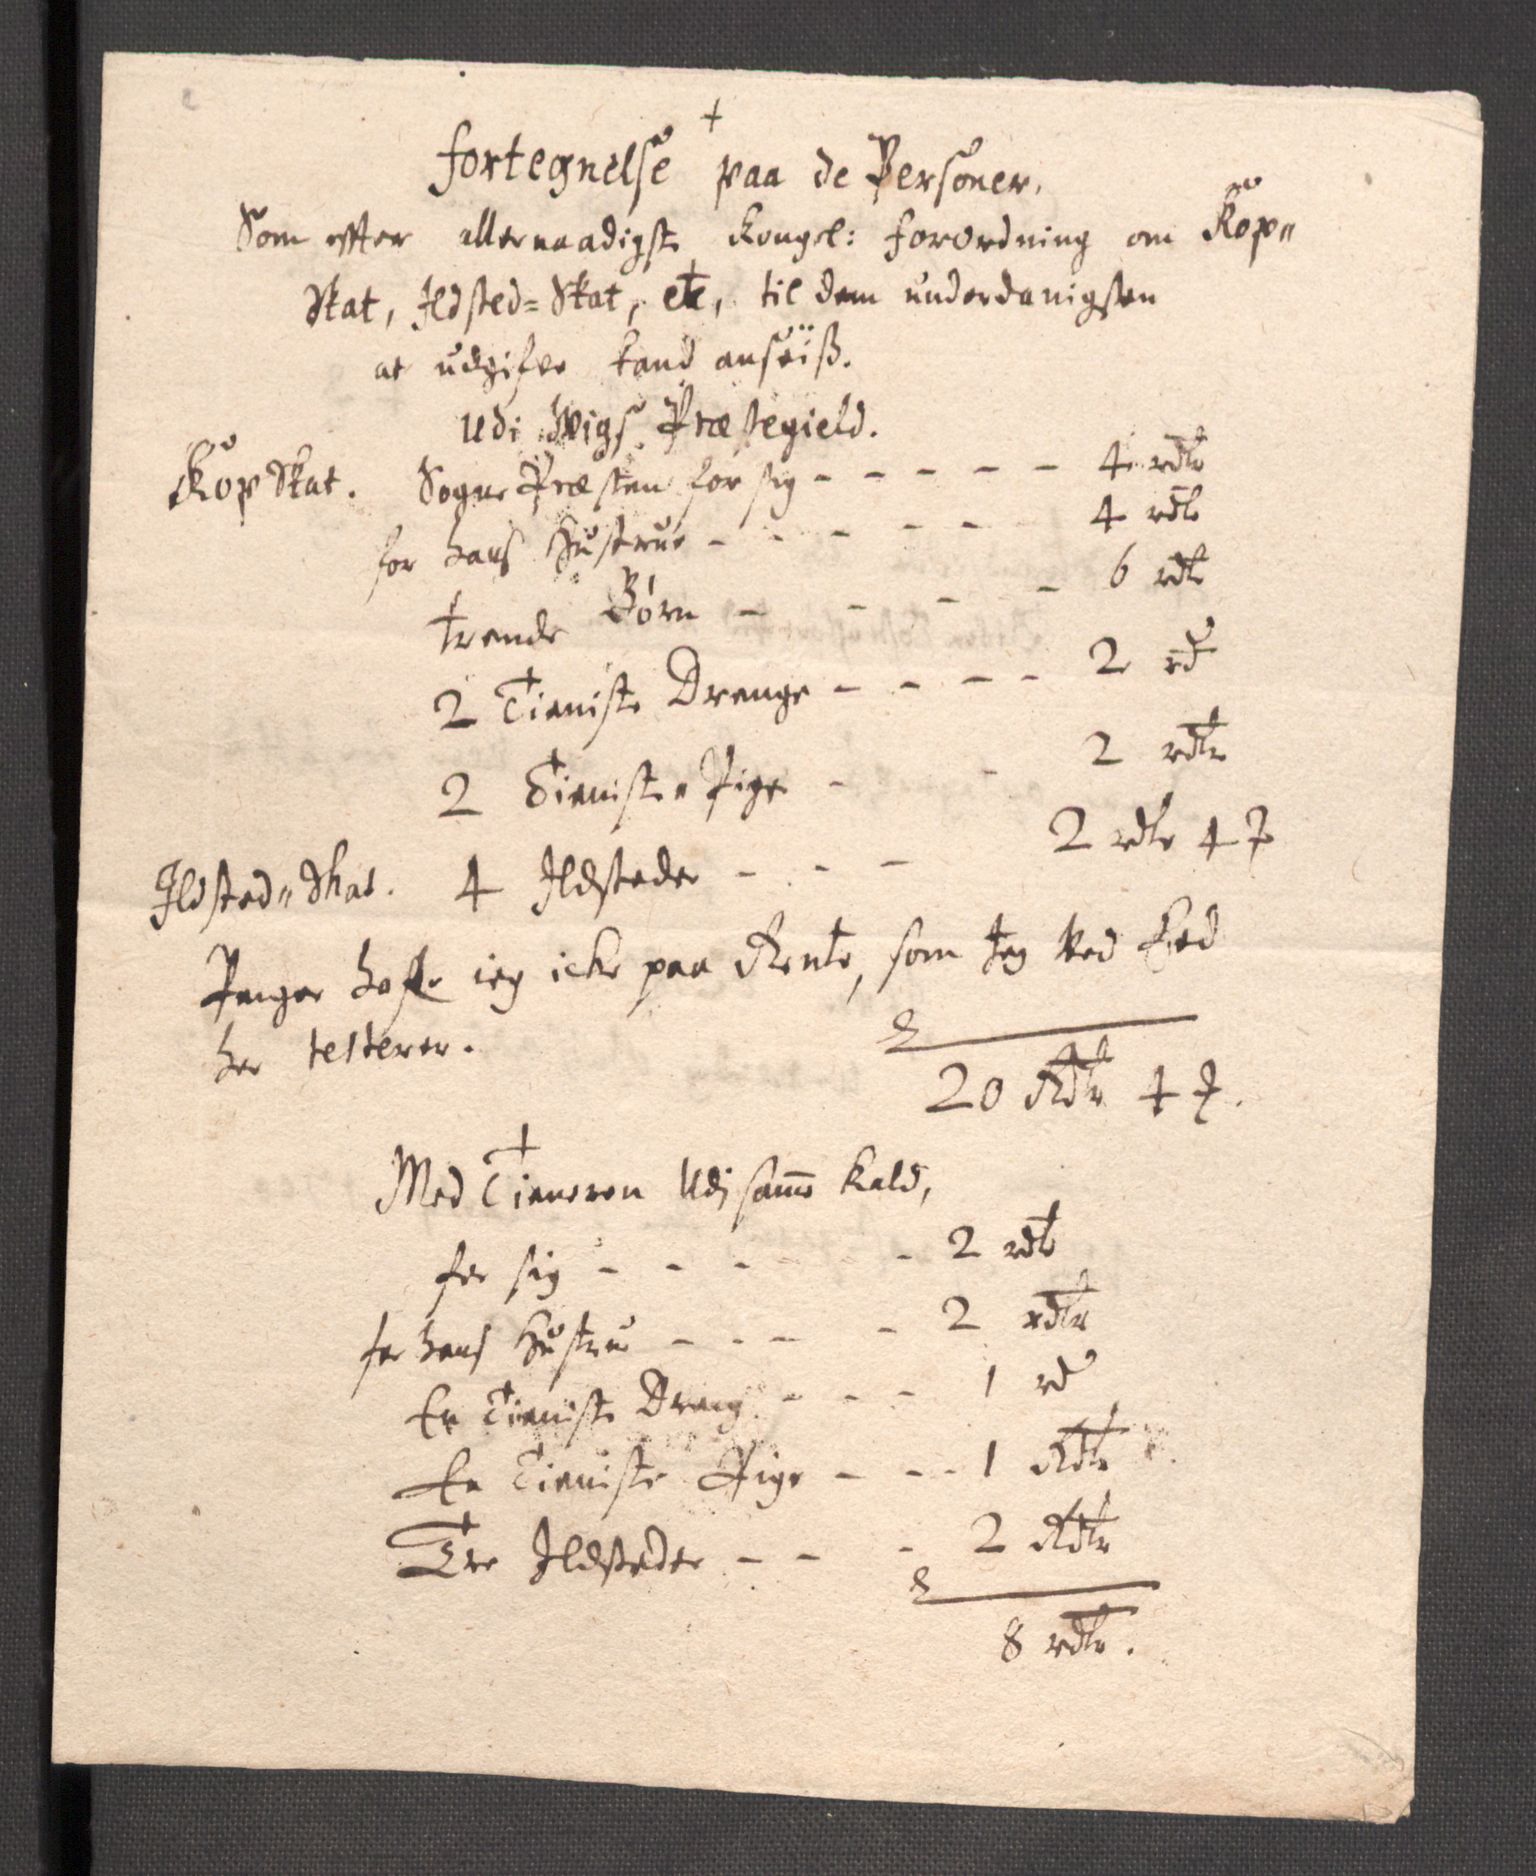 fortegnelse paa de Personer,
Som effter allernaadigste Kongel: forordning om Kop„
Skat, Ildsted=Skat, etc, til dem underdanigsten
at udgifve kand anseiß.
Udi Wigs Præstegield.
Kop Skat. Sogne Præsten for sig - - - - - 4 rdlr
for hans Hustrue - - - - - 4 rdlr
trende Børn - - - - 6 rdlr
2 Tieniste Drenge - - - - 2 rd
2 Tieniste„ Pige - - 2 rdlr
Ildsted„Skat. 4 Ildsteder - - - 2 rdlr 4 ꝥ
Penger hafr ieg icke paa Rente, som Jeg Ved Eed
her testerer.
20 Rdlr 4 ꝥ.
Med Tieneren Udj samme Kald,
for sig - - - - 2 rdlr
for hans Hustrue - - - - 2 rdlr
En Tieniste Dreng - - - 1 rd
En Tieniste Pige - - - 1 Rdlr
Tre Ildsteder - - - 2 Rdlr
8 rdlr.